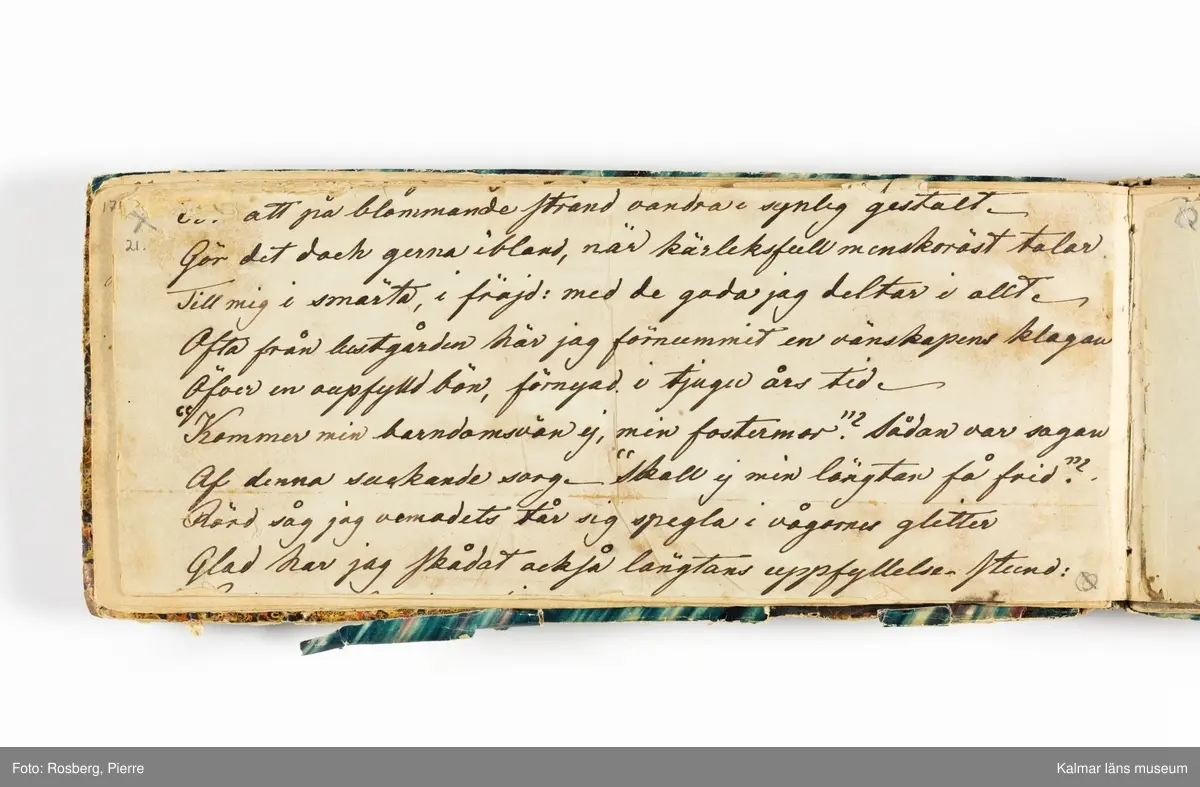 17
21.
att på blommande strand vandra i synlig gestalt
Gör det doch gerna ibland, när kärleksfull menskoröst talar
Till mig i smärta, i fröjd: med de goda jag deltar i allt
Ofta från lustgården här jag förnummit en vänskapens klagan
Öfver en oupfylld bön, förnyad i tjugu års tid
"Kommer min barndomsvän ej, min fostermor"? Sådan var sagan
Af denna suckande sorg "Skall ej min längtan få frid"?
Rörd såg jag vemodets tår sig spegla i vågornes glitter
Glad har jag skådat också längtans uppfyllelse Stund:
Foto: Rosberg, Pierre
Kalmar läns museum